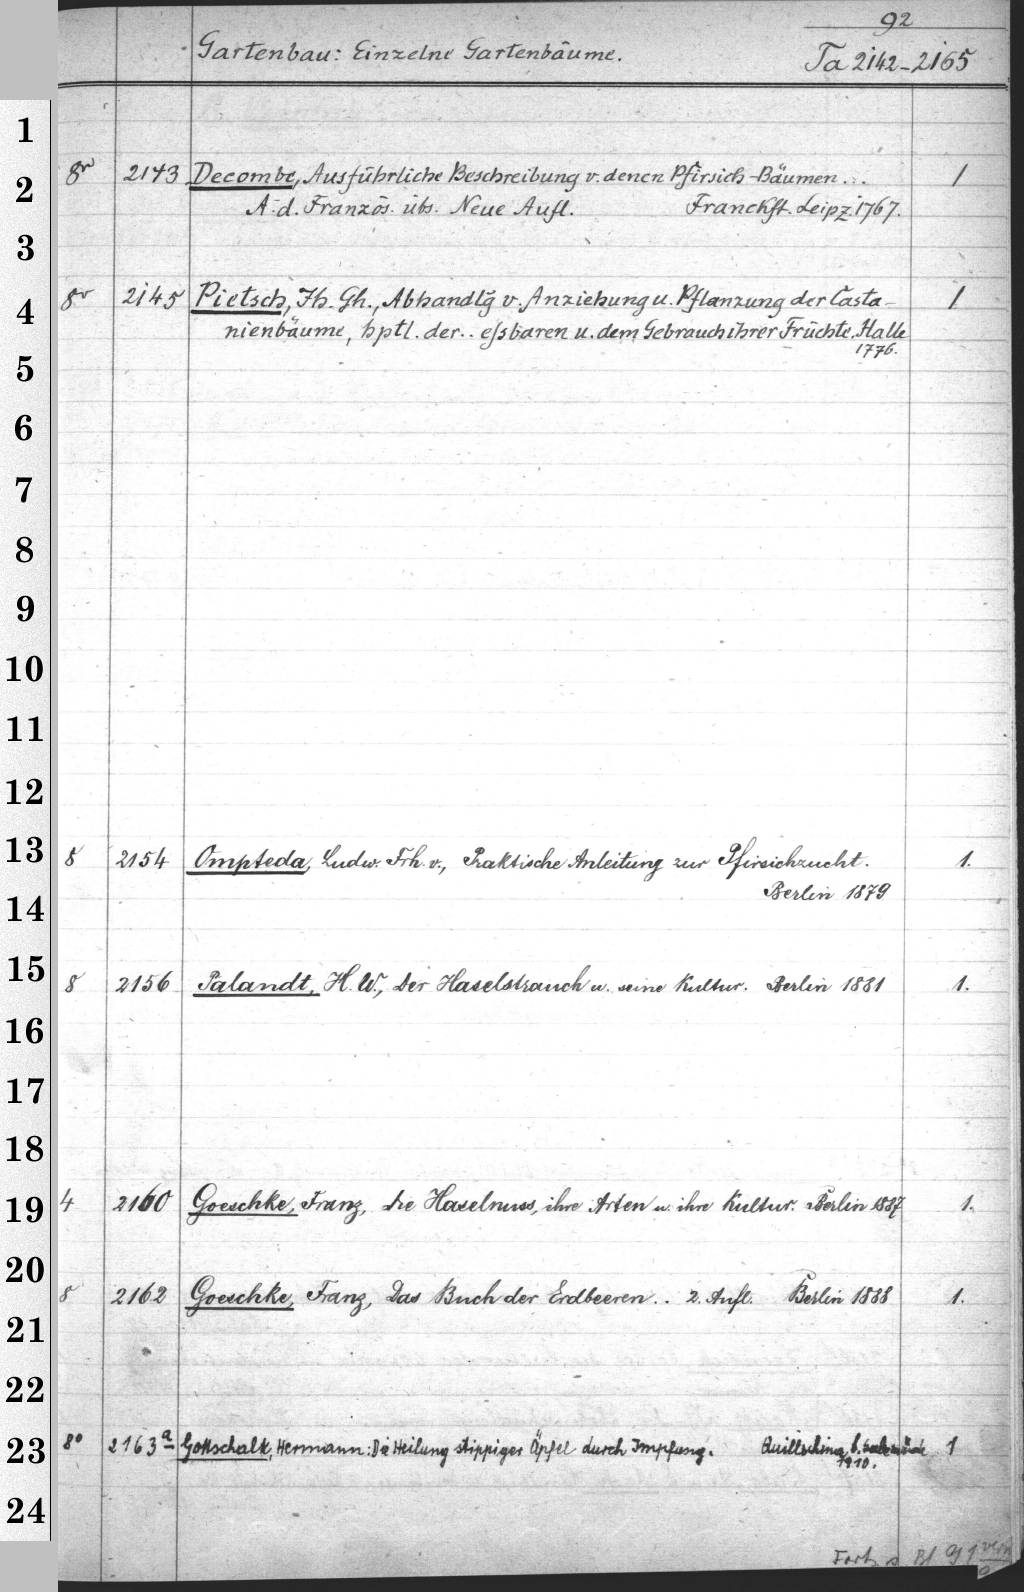 92
Gartenbau: Einzelne Gartenbäume. Ta 2142-2165
1
2
3
4
5
6
7
8
9
10
11
12
13
14
15
16
17
18
19
20
21
22
23
24
8vo 2143 Decombe, Ausführliche Beschreibung v. denen Pfirsich-Bäumen... 1
A. d. Französ. übs. Neue Aufl. Franckft. Leipz. 1767.
8vo 2145 Pietsch, Jh. Gh., Abhandlg v. Anziehung u. Pflanzung der Casta-
nienbäume, hptl. der.. essbaren u. dem Gebrauch ihrer Früchte. Halle 1
1776.
8 2154 Ompteda, Ludw. Frh. v., Praktische Anleitung zur Pfirsichzucht. 1.
Berlin 1879
8 2156 Palandt, H. W., Der Haselstrauch u. seine Kultur. Berlin 1881 1.
4 2160 Goeschke, Franz, Die Haselnuss, ihre Arten u. ihre Kultur. Berlin 1887 1.
8 2162 Goeschke, Franz, Das Buch der Erdbeeren.. 2. Aufl. Berlin 1888 1.
8° 2163a Gottschalk, Hermann: Die Heilung stippiger Äpfel durch Impfung. 1
1910.
Forts. s. Bl 91